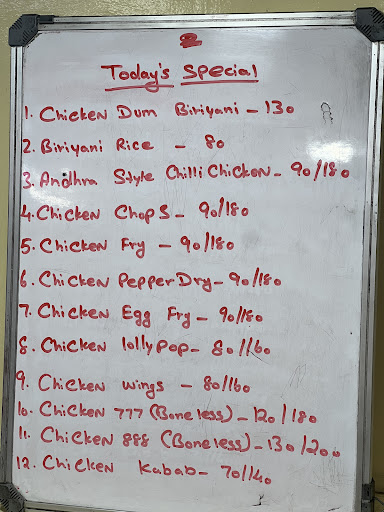 Today's Special
1. Chicken Dum Biriyani - 130
2. Biriyani Rice - 80
3. Andhra Style Chilli Chicken - 90/180
4. Chicken Chops - 90/180
5. Chicken Fry - 90/180
6. Chicken Pepper Dry - 90/180
7. Chicken Egg Fry - 90/180
8. Chicken lolly pop - 80/160
9. Chicken wings - 80/160
10. Chicken 777 (Boneless) - 120/180
11. Chicken 888 (Boneless) - 130/200
12. Chicken Kabab - 70/140